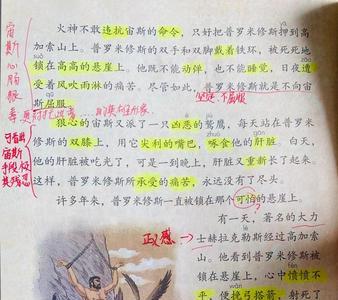 火神不敢违抗宙斯的命令，只好把普罗米修斯押到高
加索山上。普罗米修斯的双手和双脚戴着铁环，被死死地
锁在高高的悬崖上。他既不能动弹，也不能睡觉，日夜遭
受着风吹雨淋的痛苦。尽管如此，普罗米修斯就是不向宙
斯屈服。
坚定 不屈服
狠心的宙斯又派了一只凶恶的鹫鹰，每天站在普罗米
修斯的双膝上，用它尖利的嘴巴，啄食他的肝脏。白天，
他的肝脏被吃光了，可是一到晚上，肝脏又重新长了起来。
这样，普罗米修斯所承受的痛苦，永远没有了尽头。
许多年来，普罗米修斯一直被锁在那个可怕的悬崖上。
有一天，著名的大力
士赫拉克勒斯经过高加索
山。他看到普罗米修斯被
锁在悬崖上，心中愤愤不
平，便挽弓搭箭，射死了
宙斯心肠狠毒
可看出
宙斯
手段极
其残忍
正义感